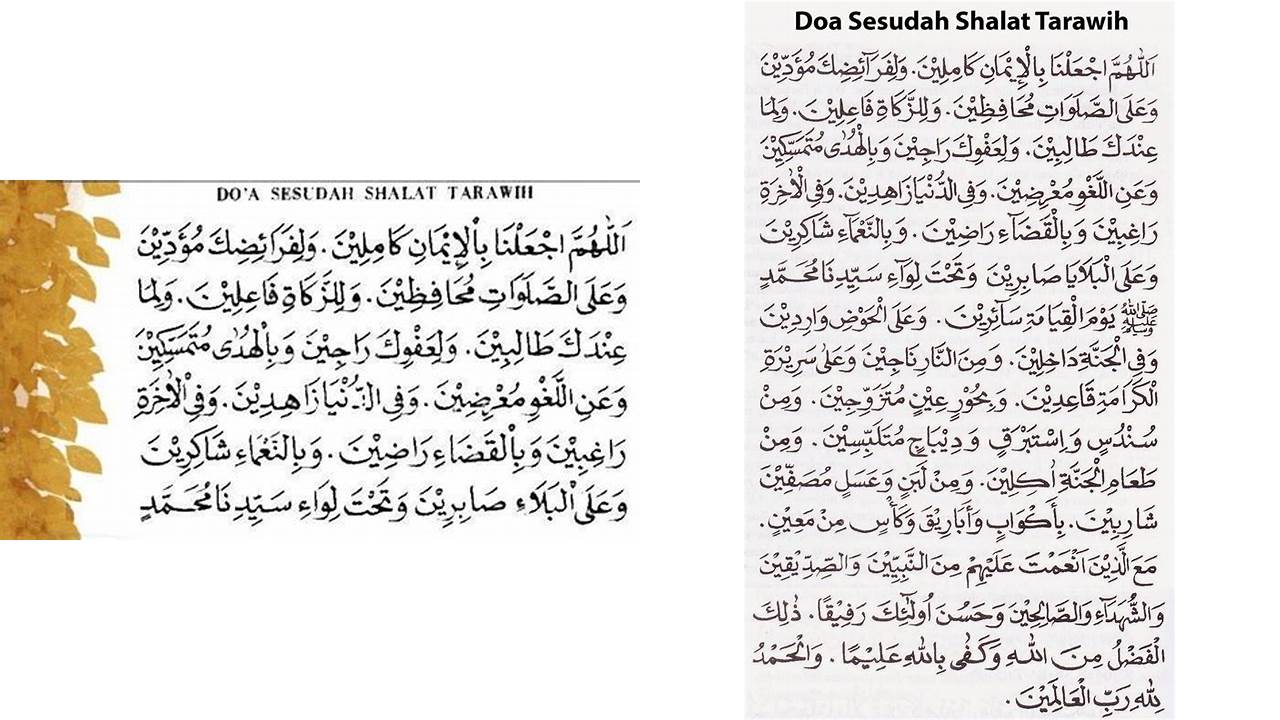 DO'A SESUDAH SHALAT TARAWIH
اَللّٰهُمَّ اجْعَلْنَا بِاْلإِيْمَانِ كَامِلِيْنَ . وَلِفَرَائِضِكَ مُؤَدِّيْنَ
وَعَلَى الصَّلَوَاتِ مُحَافِظِيْنَ . وَلِلزَّكَاةِ فَاعِلِيْنَ . وَلِمَا
عِنْدَكَ طَالِبِيْنَ . وَلِعَفْوِكَ رَاجِيْنَ وَبِالْهُدٰى مُتَمَسِّكِيْنَ
وَعَنِ اللَّغْوِ مُعْرِضِيْنَ . وَفِى الدُّنْيَا زَاهِدِيْنَ . وَفِى اْلاٰخِرَةِ
رَاغِبِيْنَ وَبِالْقَضَاءِ رَاضِيْنَ . وَبِالنَّعْمَاءِ شَاكِرِيْنَ
وَعَلَى الْبَلَاءِ صَابِرِيْنَ وَتَحْتَ لِوَاءِ سَيِّدِنَا مُحَمَّدٍ
Doa Sesudah Shalat Tarawih
اَللّٰهُمَّ اجْعَلْنَا بِالْإِيْمَانِ كَامِلِيْنَ . وَلِفَرَآئِضِكَ مُؤَدِّيْنَ
وَعَلَى الصَّلَوَاتِ مُحَافِظِيْنَ . وَلِلزَّكَاةِ فَاعِلِيْنَ . وَلِمَا
عِنْدَكَ طَالِبِيْنَ . وَلِعَفْوِكَ رَاجِيْنَ وَبِالْهُدٰى مُتَمَسِّكِيْنَ
وَعَنِ اللَّغْوِ مُعْرِضِيْنَ . وَفِى الدُّنْيَا زَاهِدِيْنَ . وَفِى الْاٰخِرَةِ
رَاغِبِيْنَ وَبِالْقَضَآءِ رَاضِيْنَ . وَبِالنَّعْمَآءِ شَاكِرِيْنَ
وَعَلَى الْبَلَايَا صَابِرِيْنَ وَتَحْتَ لِوَآءِ سَيِّدِنَا مُحَمَّدٍ
ﷺ يَوْمَ الْقِيَامَةِ سَآئِرِيْنَ . وَعَلَى الْحَوْضِ وَارِدِيْنَ
وَفِى الْجَنَّةِ دَاخِلِيْنَ . وَمِنَ النَّارِ نَاجِيْنَ وَعَلٰى سَرِيْرَةِ
الْكَرَامَةِ قَاعِدِيْنَ . وَبِحُوْرٍ عِيْنٍ مُتَزَوِّجِيْنَ . وَمِنْ
سُنْدُسٍ وَاِسْتَبْرَقٍ وَدِيْبَاجٍ مُتَلَبِّسِيْنَ . وَمِنْ
طَعَامِ الْجَنَّةِ اٰكِلِيْنَ . وَمِنْ لَبَنٍ وَعَسَلٍ مُصَفِّيْنَ
شَارِبِيْنَ . بِأَكْوَابٍ وَأَبَارِيْقَ وَكَأْسٍ مِنْ مَعِيْنٍ .
مَعَ الَّذِيْنَ اَنْعَمْتَ عَلَيْهِمْ مِنَ النَّبِيِّيْنَ وَالصِّدِّيْقِيْنَ
وَالشُّهَدَآءِ وَالصَّالِحِيْنَ وَحَسُنَ اُولٰٓئِكَ رَفِيْقًا . ذٰلِكَ
الْفَضْلُ مِنَ اللهِ وَكَفٰى بِاللهِ عَلِيْمًا . وَالْحَمْدُ
لِلّٰهِ رَبِّ الْعَالَمِيْنَ .